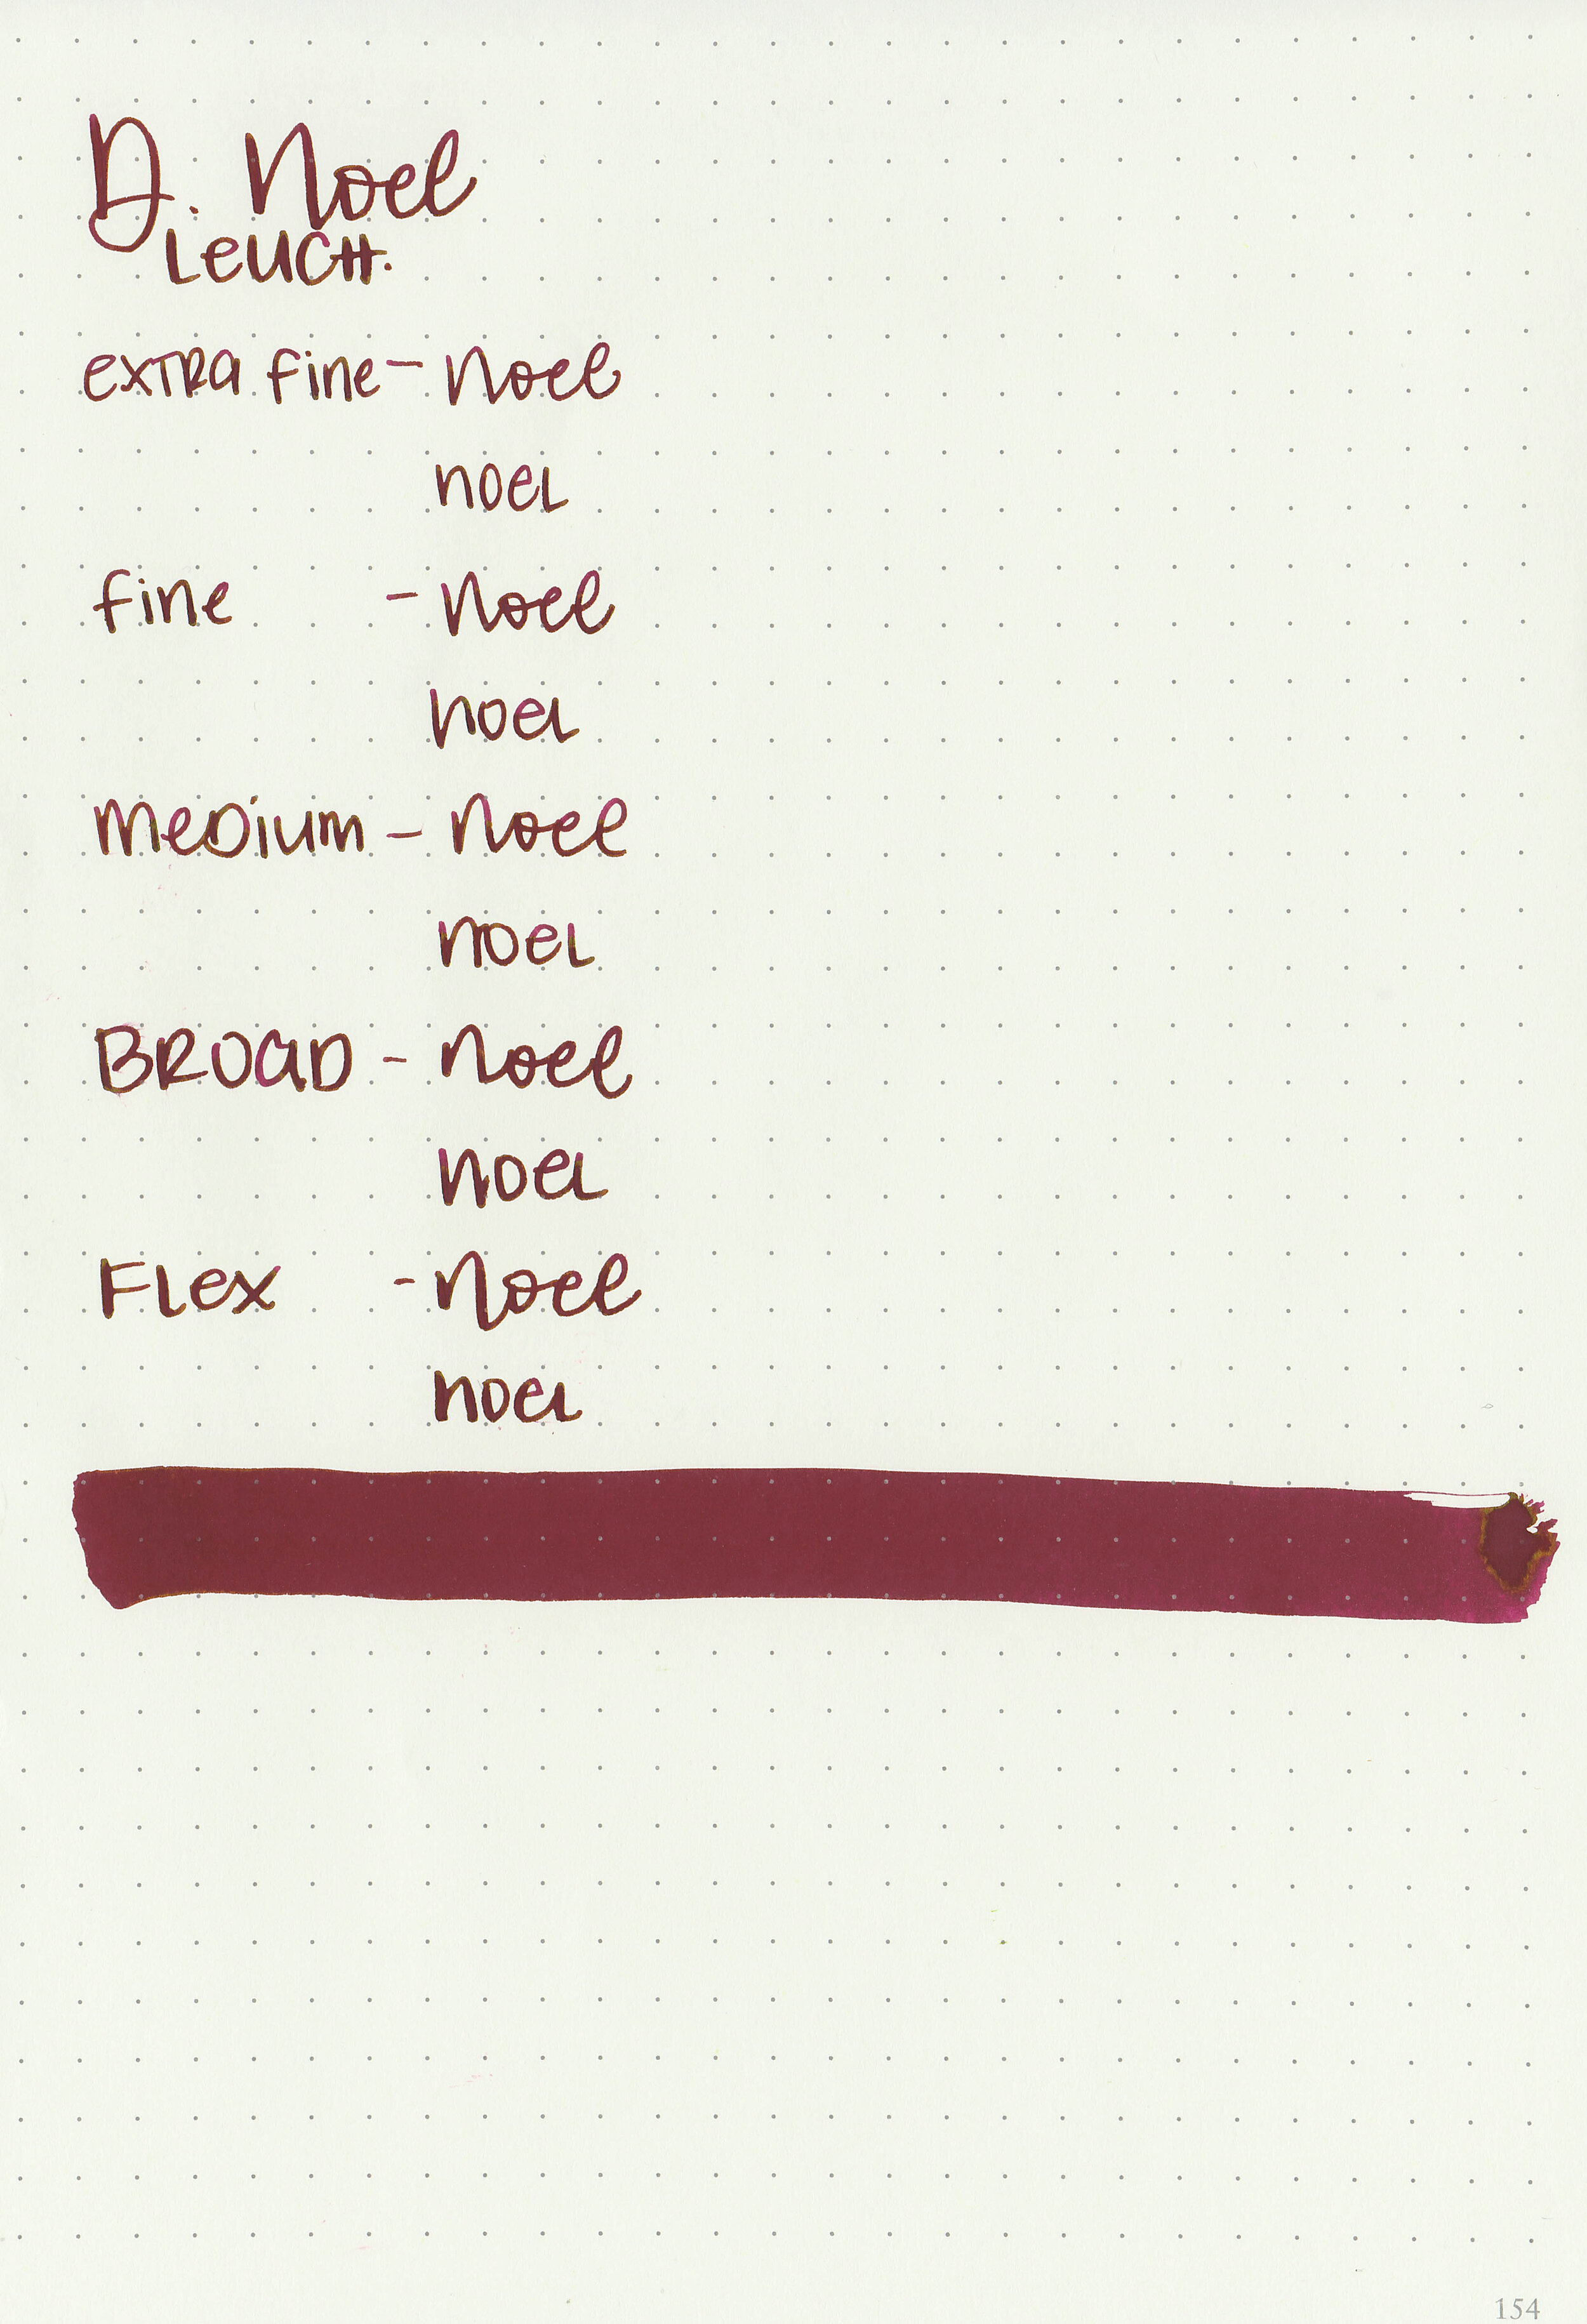 D. Noel
Leuch.
extra fine - Noel
noel
fine - Noel
noel
medium - Noel
noel
Broad - Noel
noel
Flex - Noel
noel
154